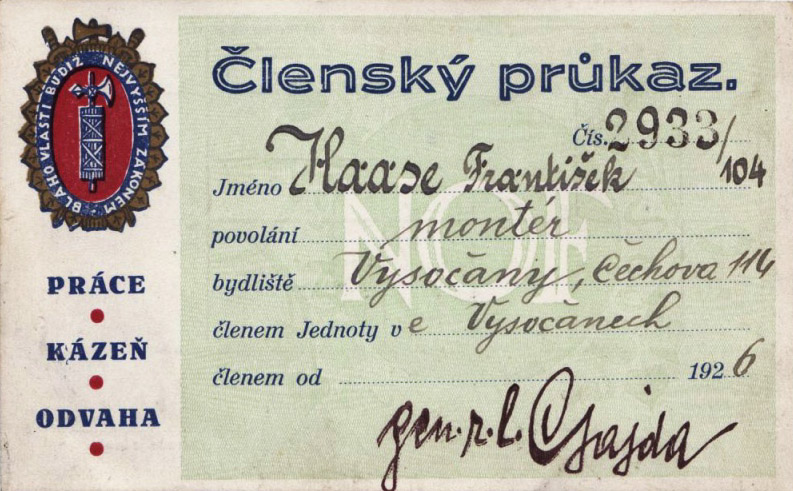 BLAHO VLASTI BUDIŽ NEJVYŠŠÍM ZÁKONEM
PRÁCE
KÁZEŇ
ODVAHA
Členský průkaz.
Čís. 2933/
104
Jméno Haase František
povolání montér
bydliště Vysočany, Čechova 114
členem Jednoty v e Vysočanech
členem od 1926
gen. r. l. Gajda
NOF